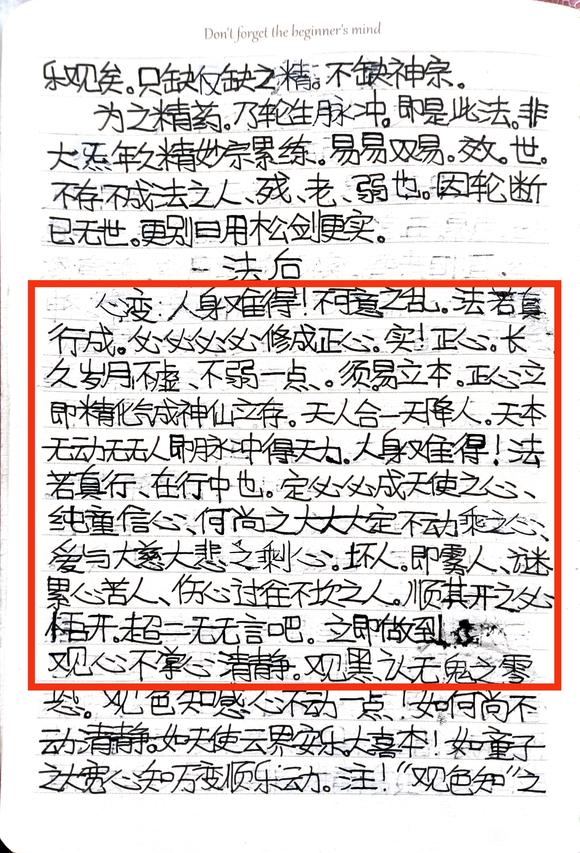 Don't forget the beginner's mind
乐观矣。只缺仅缺之精。不缺神宗。
为之精药。乃轮生脉冲。即是此法。非
大炁年久精妙宗累练。易易双易。效。世。
不存不成法之人、残、老、弱也。因轮断
已无世。更别曰用松剑更实。
一法后
心变:人身难得!不可意之乱。法若真
行成。必必必必修成正心。实!正心。长
久岁月不虚、不弱一点、。须易立本。正心立
即精化气成神仙立存。天人合一天降人。天本
无动无无人即脉冲得天力。人身难得!法
若真行、在行中也。定必必成天使之心、
纯童信心、何尚之大大大定不动乘之心、
爱与大慈大悲之剩心。坏人。即雾人、谜
累心苦人、伤心过往不坎之人。顺其开之必
悟开。超二无无言吧。立即做到
观心不掌心清静。观黑认无鬼之零
恐。观色知感心不动一点!如何尚不
动清静。如天使云界安乐大喜本!如童子
之大宽心知万变顺乐云动。注!“观色知”之